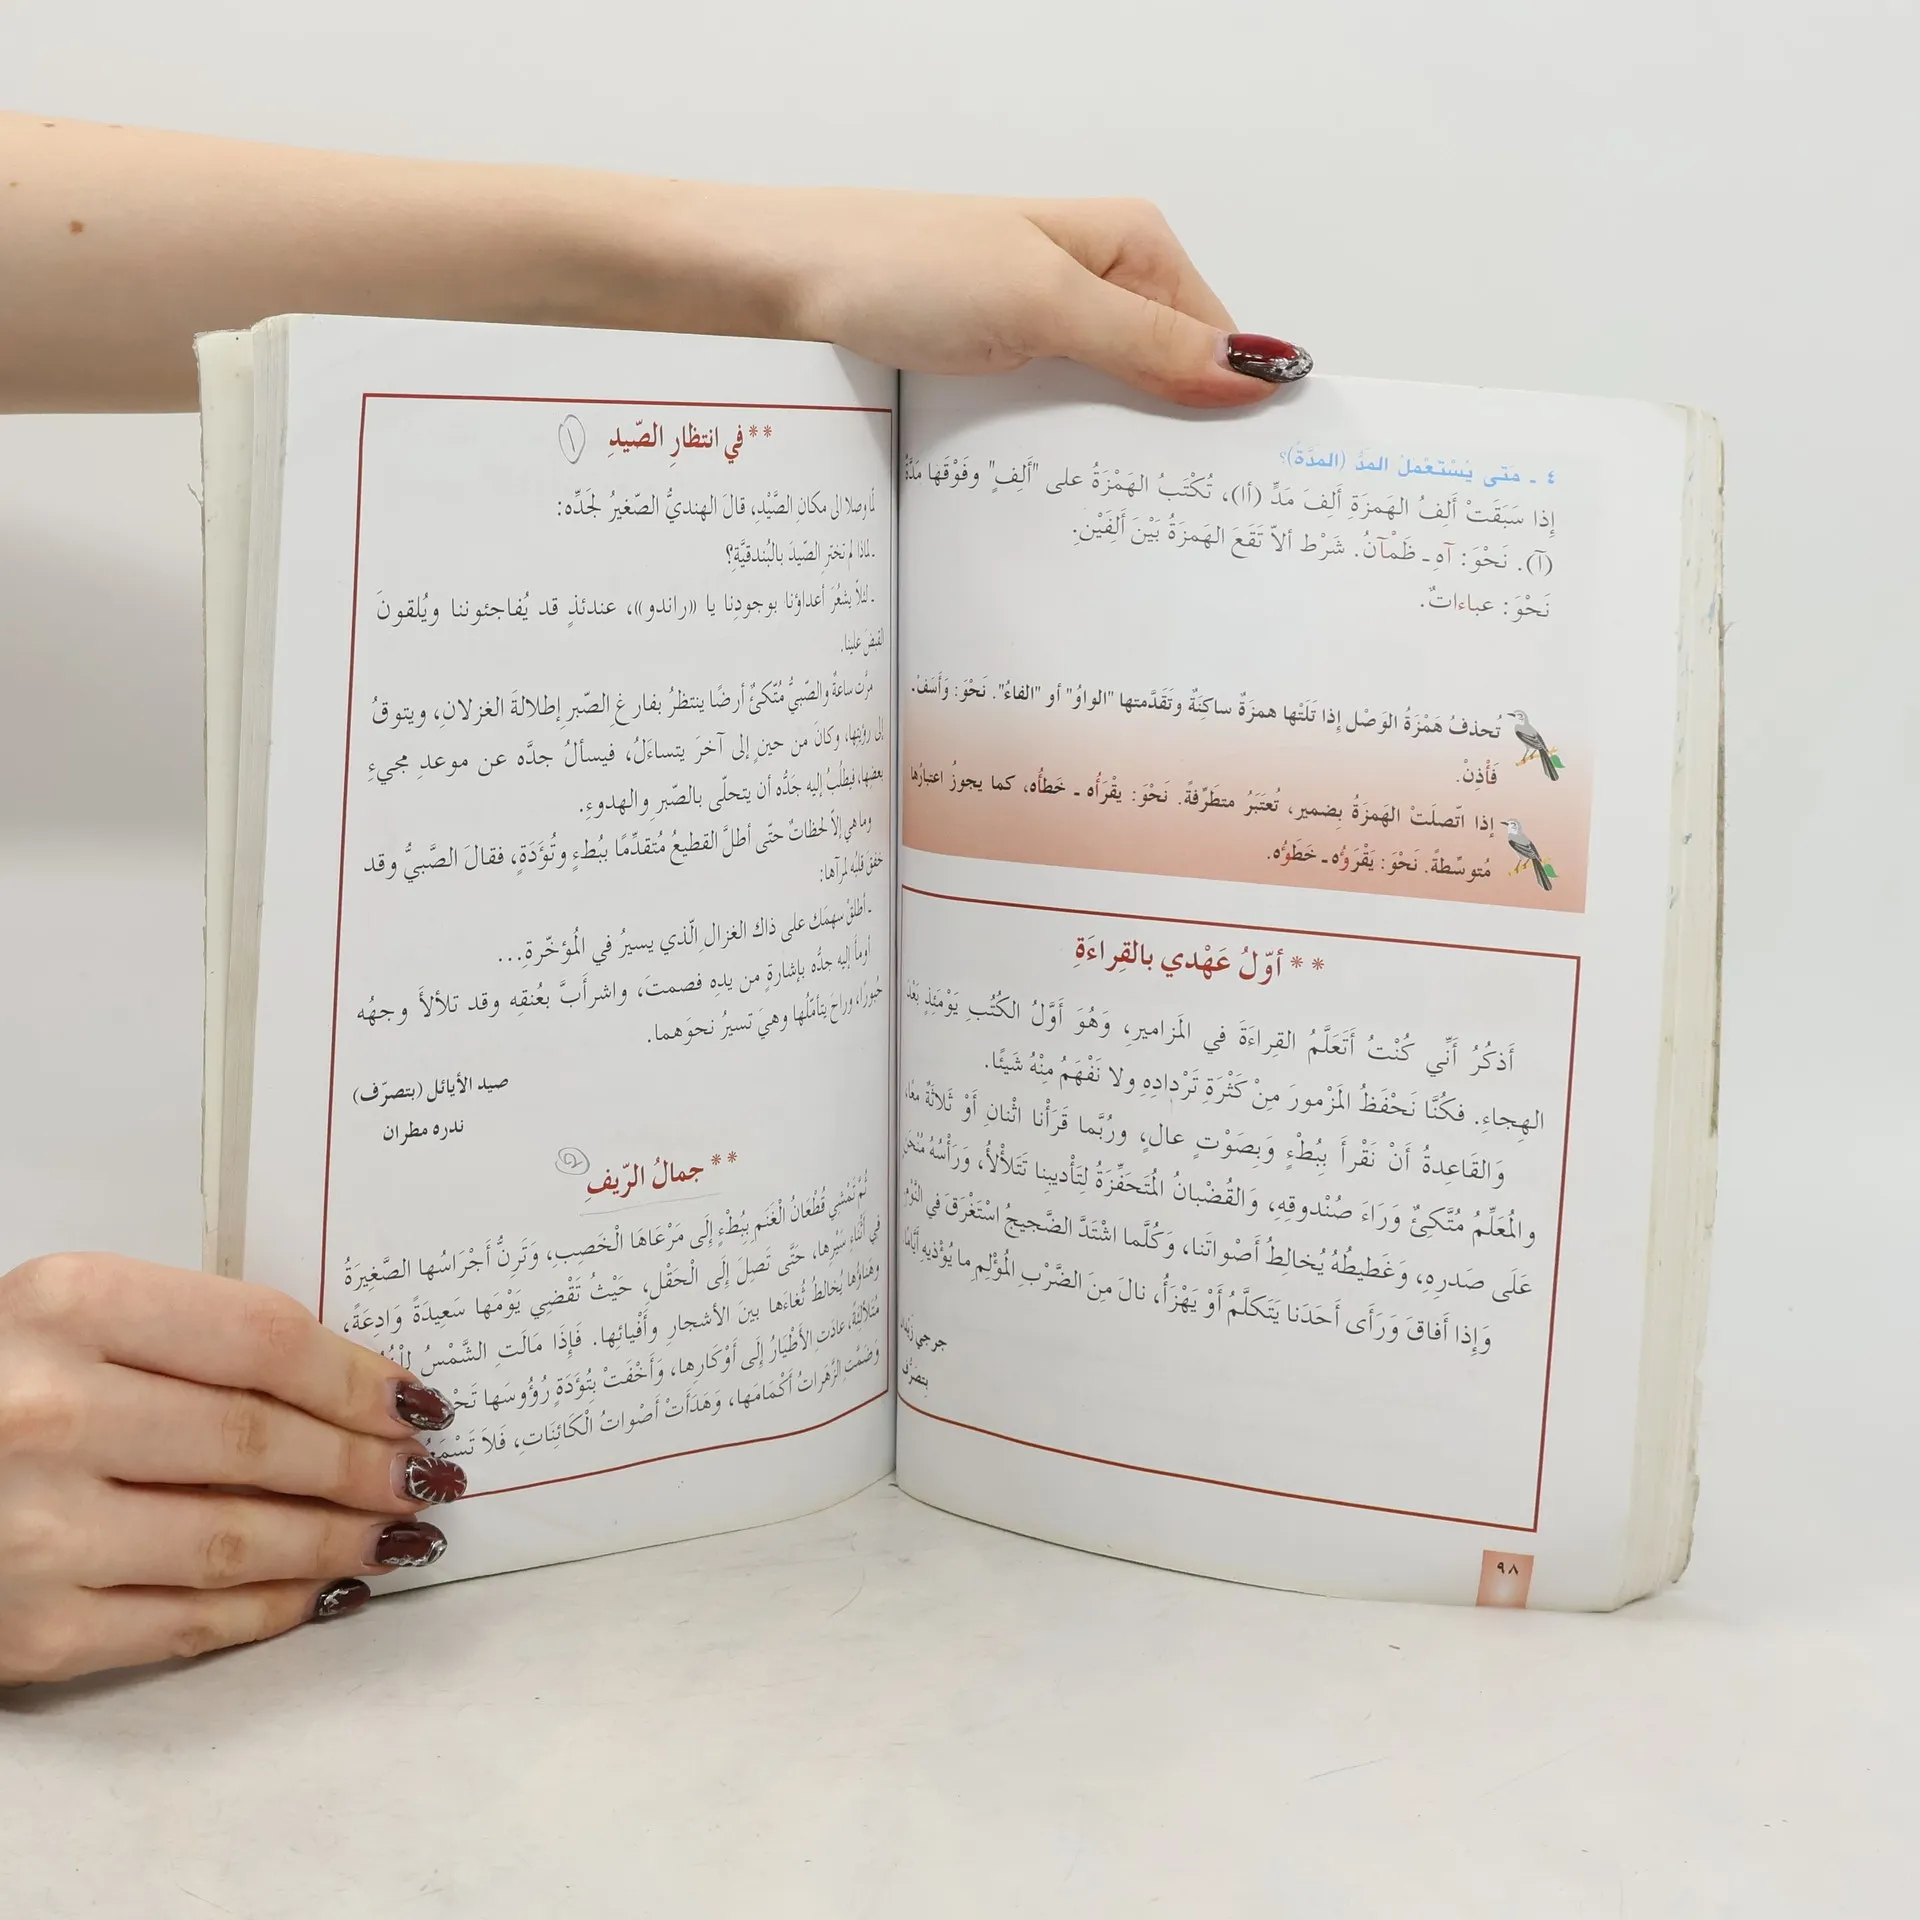 ٤ - مَتى يُسْتَعْمَلُ المَدُّ (المدَّةُ)؟
إِذا سَبَقَتْ أَلِفُ الهَمزَةِ أَلِفَ مَدٍّ (أا)، تُكْتَبُ الهَمْزَةُ على "أَلِفٍ" وفَوْقَها مَدَّةُ
(آ). نَحْوَ: آهِ - ظَمْآنُ. شَرْط ألاّ تَقَعَ الهَمزَةُ بَيْنَ أَلِفَيْنِ.
نَحْوَ: عباءاتٌ.
تُحذفُ هَمْزَةُ الوَصْل إِذا تَلَتْها همزَةٌ ساكِنَةٌ وتَقَدَّمتها "الواوُ" أو "الفاءُ". نَحْوَ: وَأْسَفْ.
فَأْذِنْ.
إذا اتّصلَتْ الهَمزَةُ بِضمير، تُعتَبَرُ متطَرِّفةً. نَحْوَ: يقْرَأُه - خَطأُه، كما يجوزُ اعتبارُها
مُتوسِّطةً. نَحْوَ: يَقْرَؤُه - خَطَؤُه.
** أوّلُ عَهْدي بالقِراءَةِ
أَذكُرُ أَنِّي كُنْتُ أَتَعَلَّمُ القِراءَةَ في المَزاميرِ، وَهُوَ أَوَّلُ الكُتُبِ يَوْمَئِذٍ بَعْدَ
الهِجاءِ. فكُنَّا نَحْفَظُ المَزْمورَ مِنْ كَثْرَةِ تَرْدادِهِ ولا نَفْهَمُ مِنْهُ شَيئًا.
وَالقَاعِدةُ أَنْ نَقْرأَ بِبُطْءٍ وَبِصَوْتٍ عالٍ، ورُبَّما قَرَأْنا اثْنانِ أَوْ ثَلاثَةٌ معًا،
والمُعَلِّمُ مُتَّكِئٌ وَرَاءَ صُنْدوقِهِ، وَالقُضْبانُ المُتَحَفِّزَةُ لِتَأْديبِنا تَتَلأْلأُ، وَرَأْسُهُ مُنْحَنٍ
عَلَى صَدرِهِ، وَغَطيطُهُ يُخالِطُ أَصْواتَنا، وَكُلَّما اشْتَدَّ الضَّجيجُ اسْتَغْرَقَ في النَّوْمِ
وَإِذا أَفاقَ وَرَأَى أَحَدَنا يَتَكَلَّمُ أَوْ يَهْزَأُ، نالَ مِنَ الضَّرْبِ المُؤْلِمِ ما يُؤْذيهِ أَيَّامًا.
جرجي زيدان
بتصرُّف
٩٨
** في انتظارِ الصّيدِ ١
لمّا وصلا الى مكانِ الصَّيْدِ، قالَ الهنديُّ الصّغيرُ لجَدِّه:
- لماذا لم تختَرِ الصّيدَ بالبُندقيَّةِ؟
- لئلاّ يشعُرَ أعداؤنا بوجودِنا يا «راندو»، عندئذٍ قد يُفاجئوننا ويُلقونَ
القبضَ علينا.
مرَّت ساعةٌ والصّبيُّ مُتّكئٌ أرضًا ينتظرُ بفارغِ الصّبرِ إطلالةَ الغزلانِ، ويتوقُ
إلى رؤيتِها، وكانَ من حينٍ إلى آخرَ يتساءَلُ، فيسألُ جدَّه عن موعدِ مجيءِ
بعضِها، فيطلُبُ إليه جَدُّه أن يتحلّى بالصّبرِ والهدوءِ.
وما هي إلاّ لحظاتٌ حتّى أطلَّ القطيعُ مُتقدِّمًا ببُطءٍ وتُؤَدَةٍ، فقالَ الصَّبيُّ وقد
خفقَ قلبُه لمرآها:
- أطلقْ سهمَك على ذاك الغزالِ الّذي يسيرُ في المُؤخّرةِ...
أومأَ إليه جدُّه بإشارةٍ من يدِهِ فصمتَ، واشرأَبَّ بعُنقِه وقد تلألأَ وجهُه
حُبورًا، وراحَ يتأمّلُها وهيَ تسيرُ نحوَهما.
صيد الأيائل (بتصرّف)
ندره مطران
** جمالُ الرّيفِ 2
ثُمَّ تَمْشِي قُطْعَانُ الْغَنَمِ بِبُطْءٍ إِلَى مَرْعَاهَا الْخَصِبِ، وَتَرِنُّ أَجْرَاسُها الصَّغِيرَةُ
فِي أَثْنَاءِ سَيْرِها، حَتَّى تَصِلَ إِلَى الْحَقْلِ، حَيْثُ تَقْضِي يَوْمَها سَعِيدَةً وَادِعَةً،
وهُناؤُها يُخالطُ ثُغاءَها بينَ الأشجارِ وأَفْيائِها. فَإِذَا مَالَتِ الشَّمْسُ
مُتَلألِئَةً، عادَتِ الأَطْيَارُ إِلَى أَوْكَارِها، وَأَخْفَتْ بِتُؤَدَةٍ رُؤُوسَها
وَضَمَّتِ الزَّهَراتُ أَكْمَامَها، وَهَدَأَتْ أَصْواتُ الْكَائِنَاتِ، فَلاَ